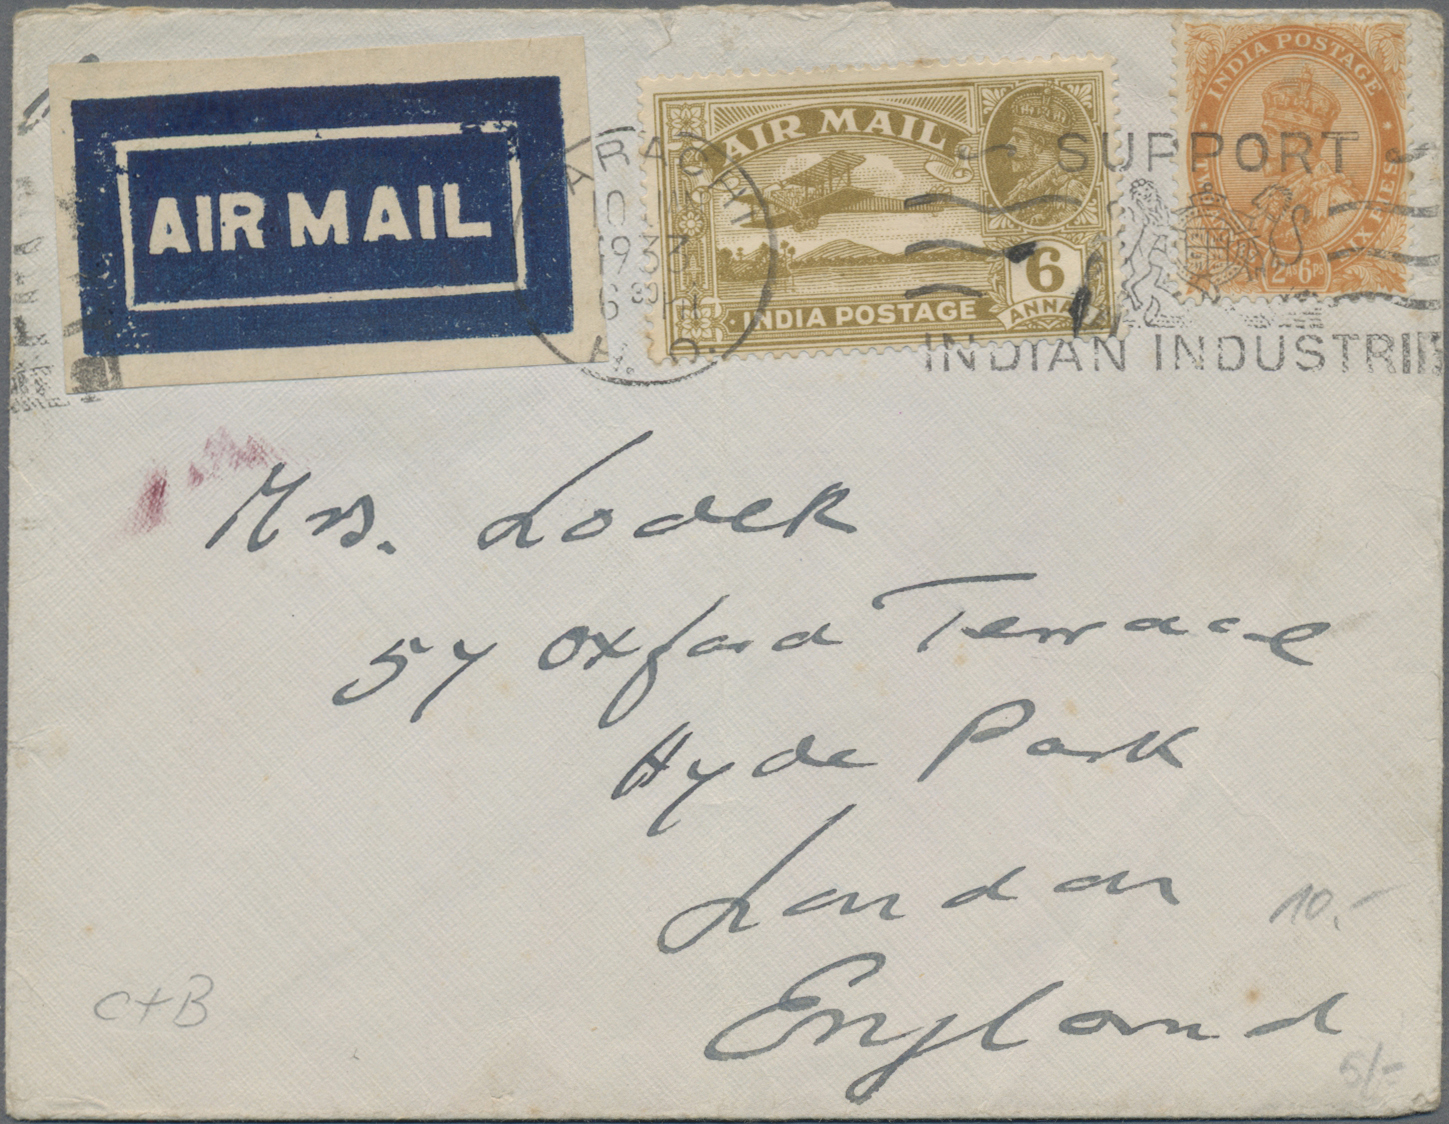 AIR MAIL
AIR MAIL
6
ANNAS
INDIA POSTAGE
INDIA POSTAGE
2As6ps
KARACHI
1933
6 30
H.O.
SUPPORT
INDIAN INDUSTRIE
Mrs. Lodek
57 Oxford Terrace
Hyde Park
London
England
10.-
C+B
5/-